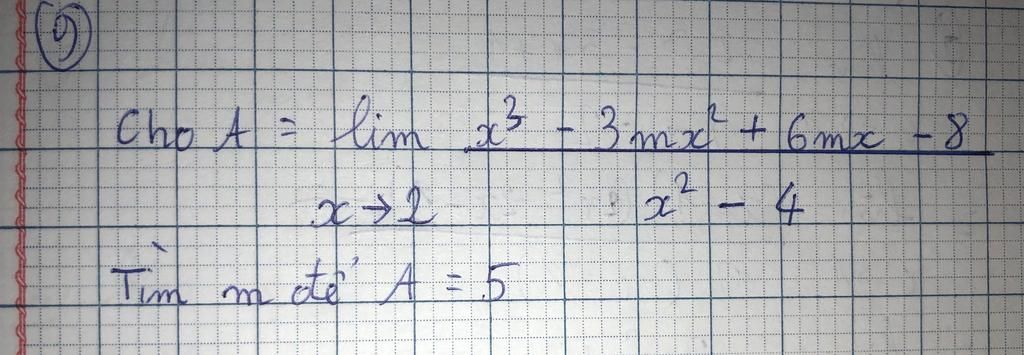 9
Cho A = lim x³ - 3mx² + 6mx - 8
x → 2 x² - 4
Tìm m để A = 5